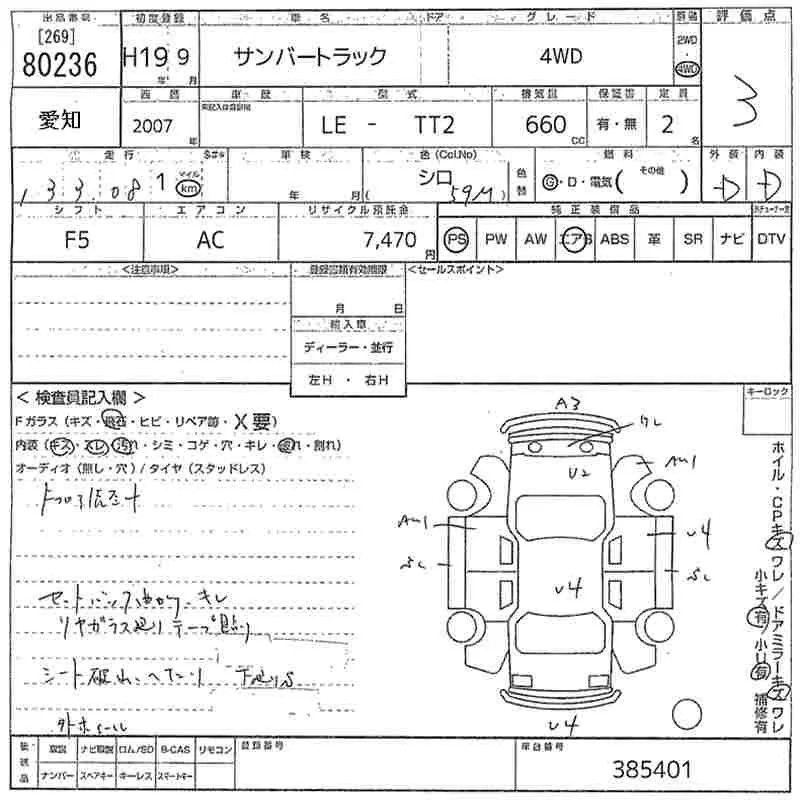 出品番号 初度登録 車名 ドア グレード 評価点
[269]
80236 H19 9 サンバートラック 4WD 2WD・4WD 3
年 月
西暦 車歴 型式 排気量 保証書 定員
愛知 2007 年 LE - TT2 660 CC 有・無 2 名
走行 車検 色(Col.No) 色替 燃料 外装 内装
133.08 1 マイル km 年 月 シロ 59M G・D・電気( その他 ) D D
シフト エアコン リサイクル預託金 純正装備品
F5 AC 7,470 円 PS PW AW エアB ABS 革 SR ナビ DTV
<注意事項> 登録書類有効期限 <セールスポイント>
月 日
輸入車
ディーラー・並行
左H ・ 右H
<検査員記入欄> キーロック
Fガラス(キズ・飛石・ヒビ・リペア跡・X要)
内装(キズ・スレ・汚れ・シミ・コゲ・穴・キレ・破れ・割れ)
オーディオ(無し・穴)/タイヤ(スタッドレス)
A3
U2
U4
U4
U4
リヤガラス廻りテープ貼り
シート破れ、ヘタリ 下廻りS
ホイル・CPキズワレ/ドアミラーキズワレ
小キズ有/小U有 補修有
後送品 取説 ナビ取説 ロム/SD B-CAS リモコン 登録番号 車台番号
ナンバー スペアキー キーレス スマートキー 385401